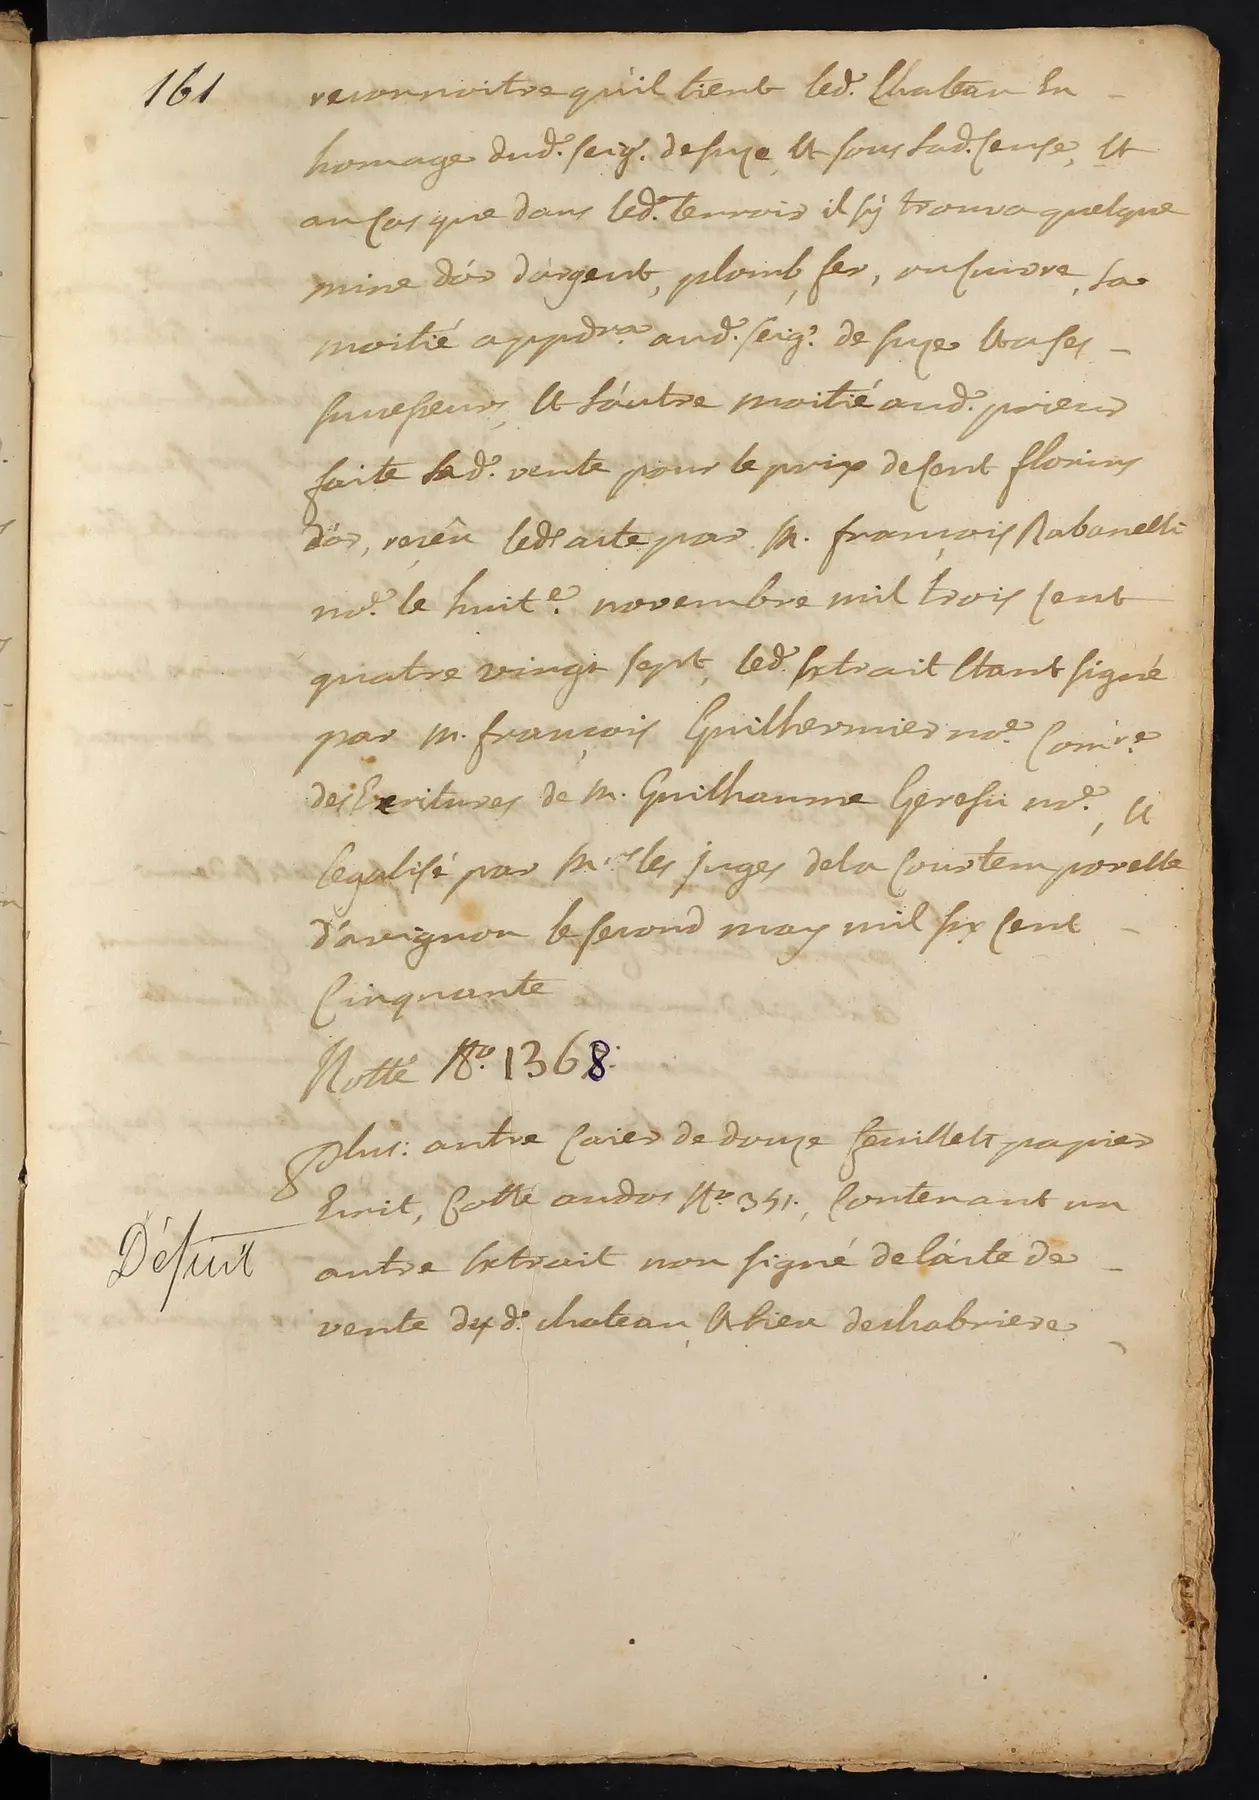 161
reconnoitre qu'il tient led. Chateau En
homage dud. seigr. de suze Et sous lad. Cense, Et
au Cas que dans led. terroir il sÿ trouva quelque
mine d'or d'argent, plomb, fer, ou Cuivre, La
moitié appdra. aud. seigr. de suze Et a ses
successeurs, Et L'autre moitié aud. prieur
faite Lad. vente pour le prix de Cent florins
d'or, recëu led. acte par M. françois Rabanelli
nore. le huite. novembre mil trois Cent
quatre vingt sept, led. Extrait Etant signé
par M. françois Guilhermier nore. Comre.
des Ecritures de M. Guilhaume nore., Et
Legalisé par Mrs les juges de la Cour temporelle
d'avignon le second may mil six Cent
Cinquante
Notté No. 1368.
plus: autre Caier de douze feuillets papier
Ecrit, Cotté au dos No. 351., Contenant un
Déficit
autre Extrait non signé de L'acte de
vente dud. chateau, Et lieu de chabriere